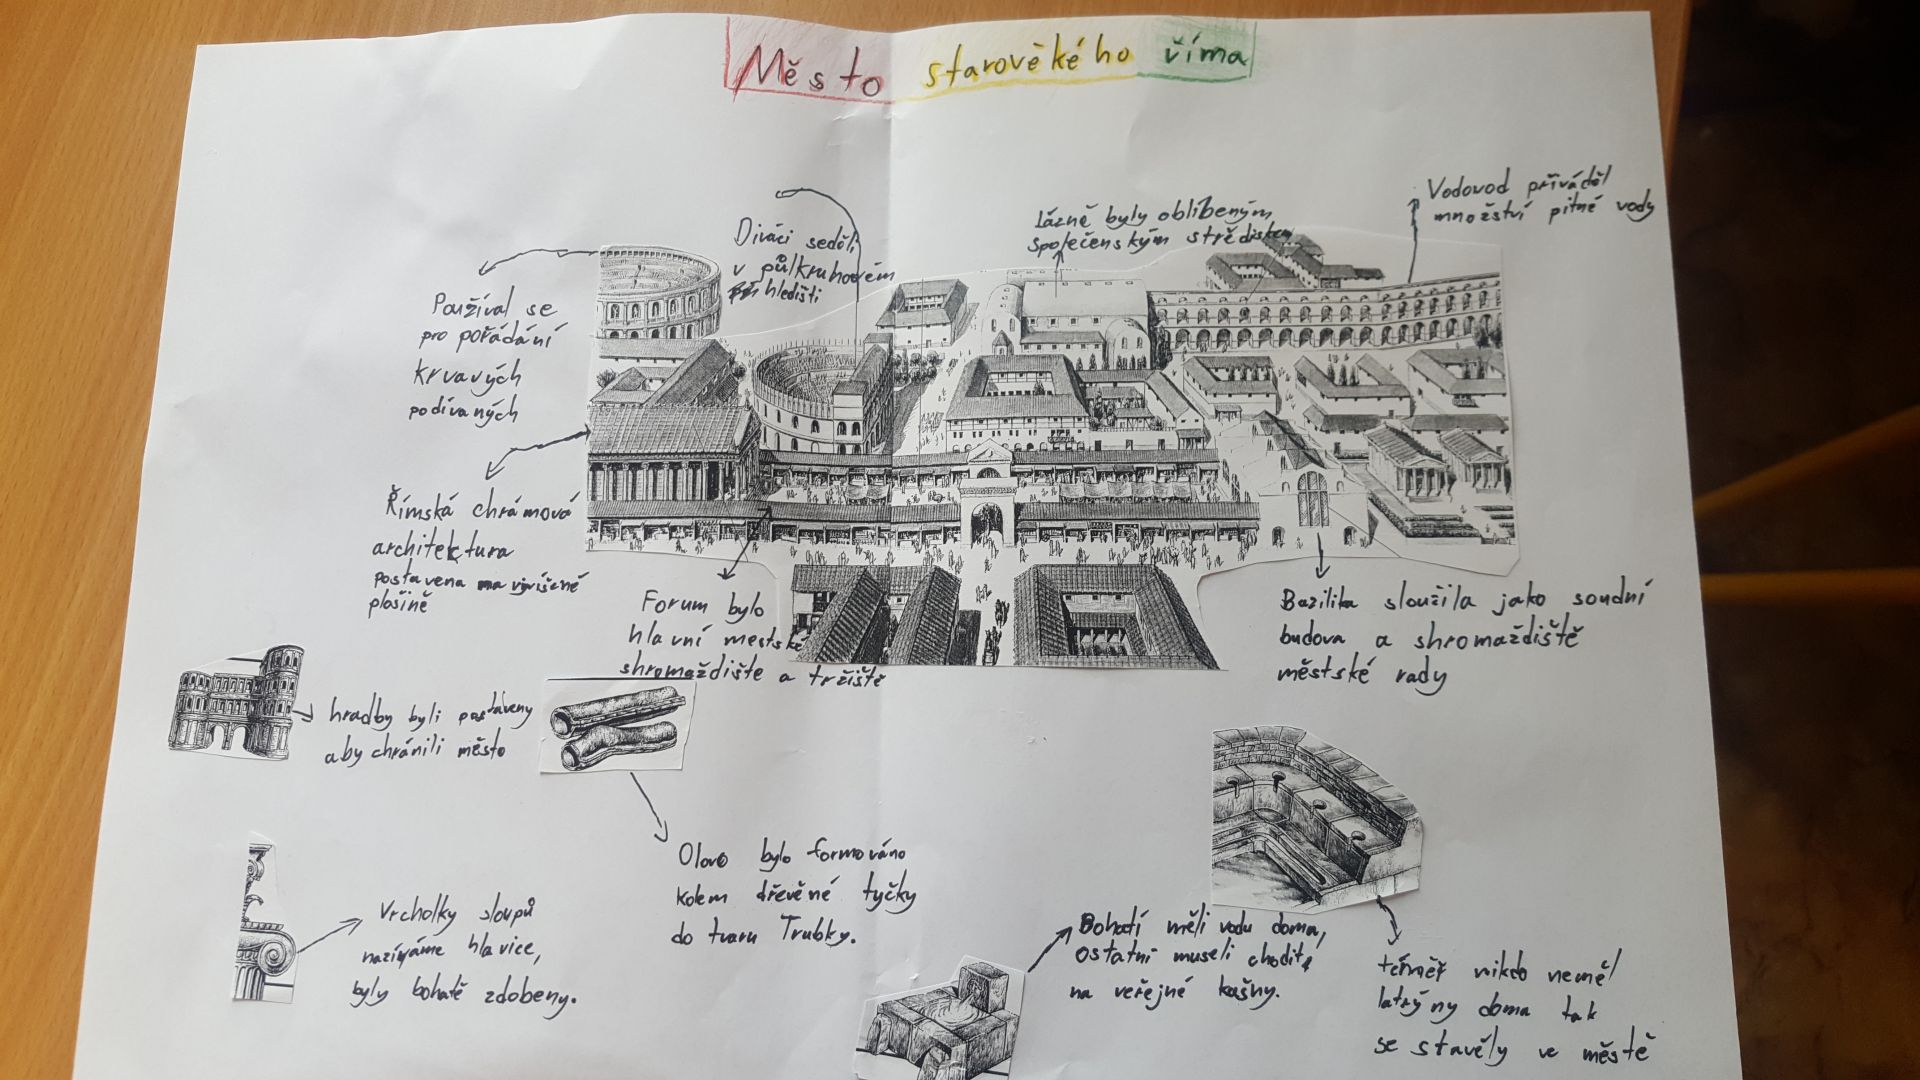 Město starověkého říma
Vodovod přiváděl
množství pitné vody
Lázně byly oblíbeným
společenským střediskem
Diváci seděli
v půlkruhovém
hledišti
Používal se
pro pořádání
krvavých
podívaných
Římská chrámová
architektura
postavena na vyvíšené
plošině
Forum bylo
hlavní mestské
shromaždiště a tržiště
Bazilika sloužila jako soudní
budova a shromaždiště
městské rady
hradby byli postaveny
aby chránili město
Olovo bylo formováno
kolem dřevěné tyčky
do tvaru Trubky.
Vrcholky sloupů
nazíváme hlavice,
byly bohatě zdobeny.
Bohatí měli vodu doma,
ostatní museli chodit
na veřejné kašny.
téměř nikdo neměl
latrýny doma tak
se stavěly ve městě